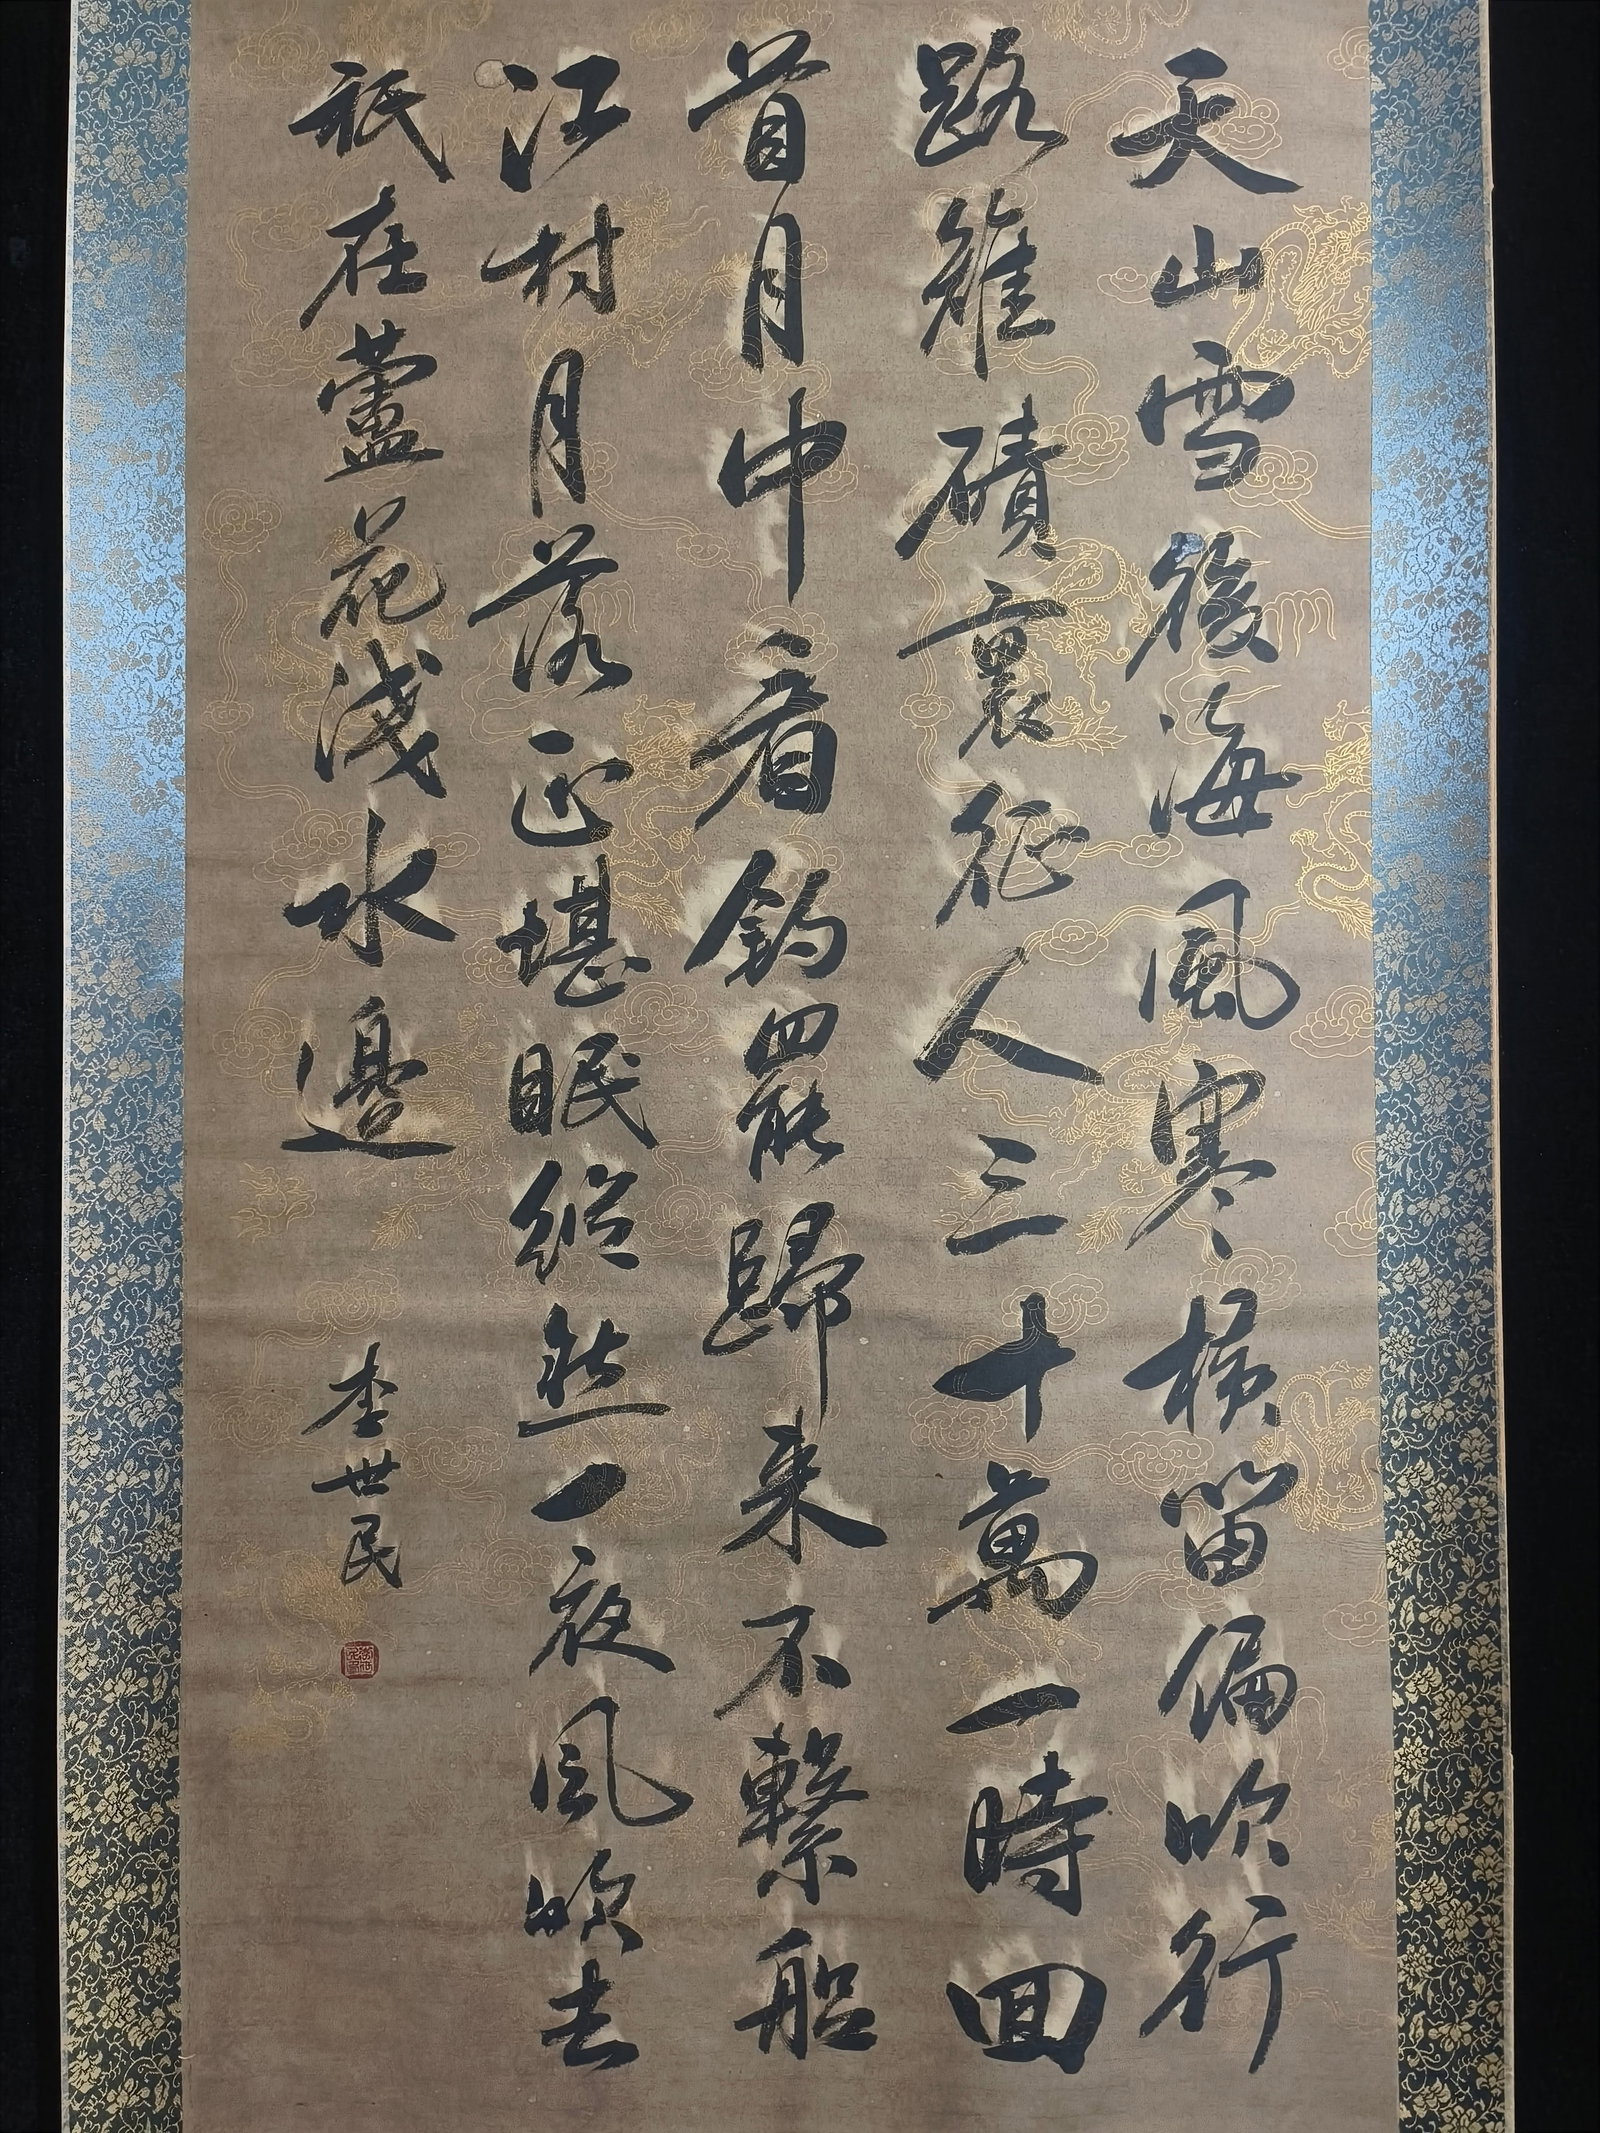 天山雪後海風寒橫笛偏吹行
路難磧裏征人三十萬一時回
首月中看釣罷歸來不繫船
江村月落正堪眠縱然一夜風吹去
祇在蘆花淺水邊
李世民